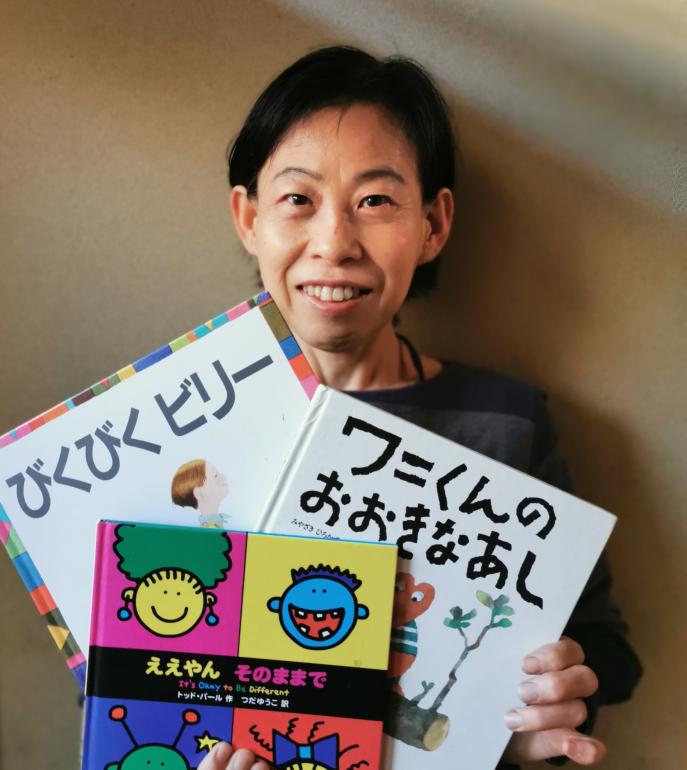 びくびく ビリー
ワニくんの
おおきなあし
みやざき ひろかず
ええやん そのままで
It's Okay to Be Different
トッド・パール 作 つだゆうこ 訳